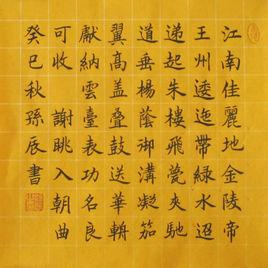 江南佳麗地金陵帝
王州逶迤帶綠水迢
遞起朱樓飛甍夾馳
道垂楊蔭御溝凝笳
翼高盖疊鼓送華輈
獻納雲臺表功名良
可收 謝眺入朝曲
癸巳秋孫辰書